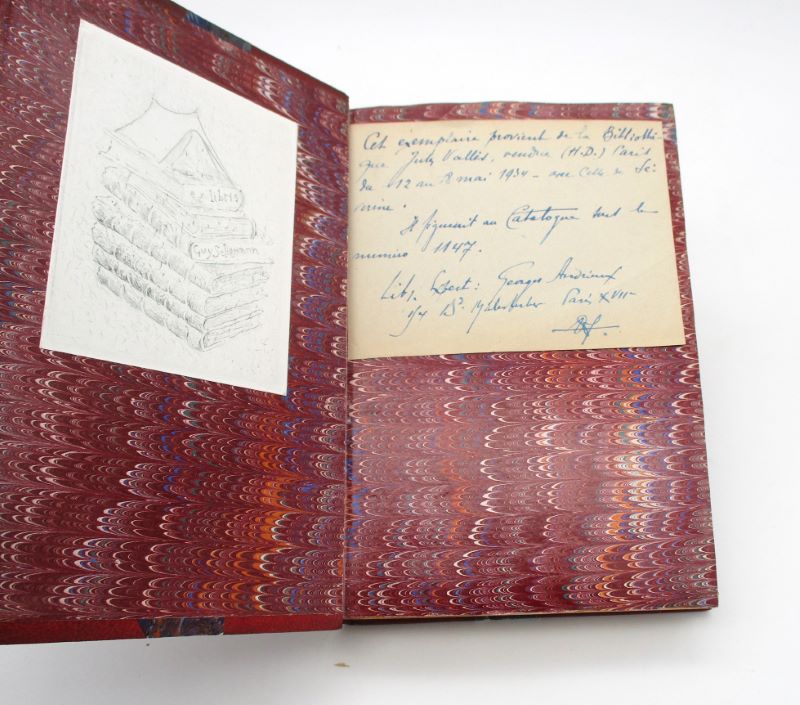 ex libris
Guy
Cet exemplaire provient de la Bibliothè-
que Jules Vallès, vendue (H.D.) Paris
du 12 au mai 1934 - avec celle de Sé-
verine.
Il figurait au Catalogue sous le
numéro 1147.
Libr. Expert: Georges Andrieux
154 Bd Malesherbes Paris XVII-